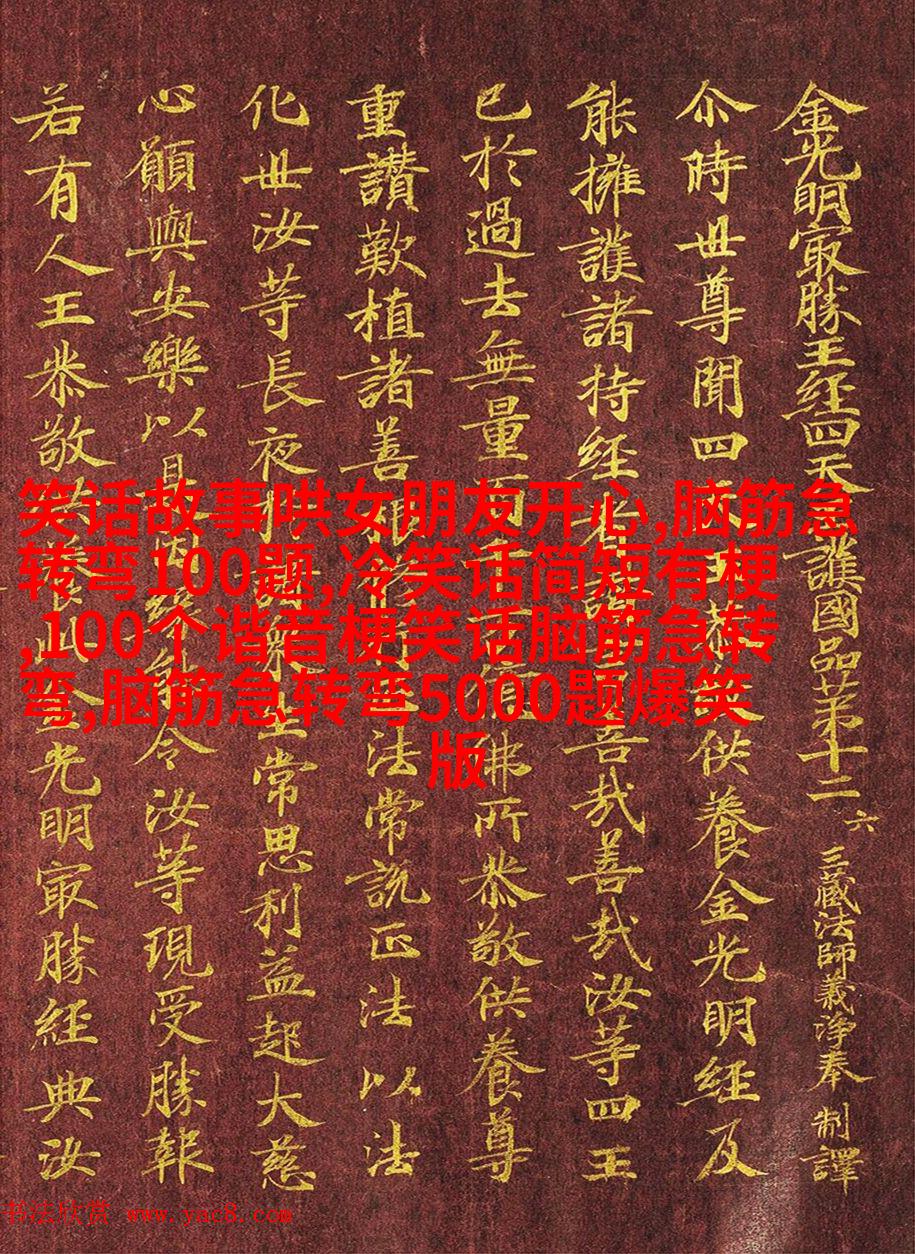 金光明㝡勝王經四天護國品苐十二 六 三藏法師義淨奉 制譯
尒時世尊聞四供養金光明經及
能擁護諸持經者善哉善哉汝等四王
已於過去無量百佛所恭敬供養尊
重讚歎植諸善根法常說正法以法
化世汝等長夜生常思利益起大慈
心願與安樂以是因緣能令汝等現受勝報
若有人王恭敬供養此金光明㝡勝經典汝
笑话故事哄女朋友开心,脑筋急
转弯100题,冷笑话简短有梗
,100个谐音梗笑话脑筋急转
弯,脑筋急转弯5000题爆笑
版
书法欣赏 www.yac8.com